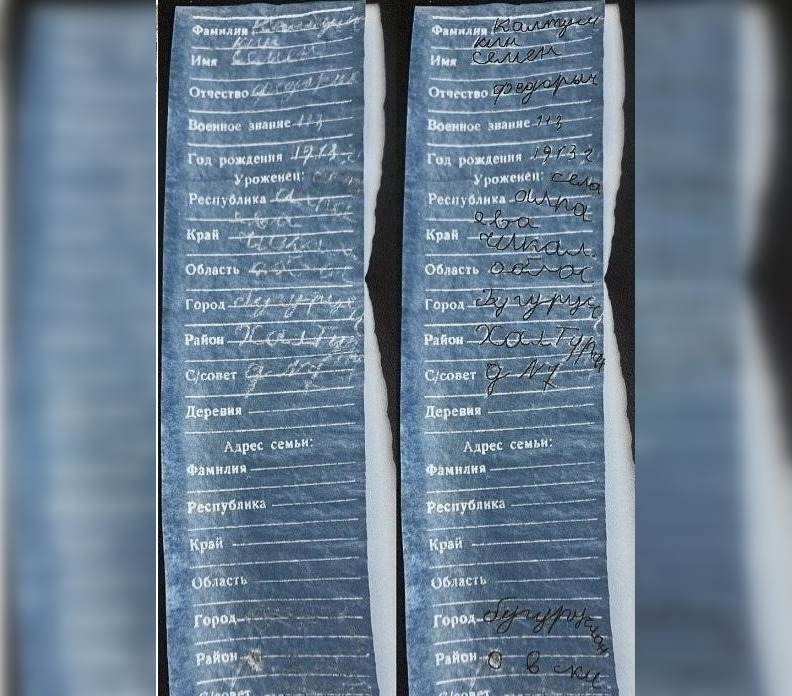 Фамилия Калтуш
кин
Имя Семен
Отчество Федорыч
Военное звание
Год рождения 1913 г
Уроженец:
Республика
Край Чкал.
Область облас
Город Бугурус
Район Халтурин
С/совет д №
Деревня
Адрес семьи:
Фамилия
Республика
Край
Область
Город
Район
С/совет
Фамилия Калтуш
кин
Имя Семен
Отчество Федорыч
Военное звание
Год рождения 1913 г
Уроженец: села
Республика
ева
Край Чкал.
Область облас
Город Бугурус
Район Халтурин
С/совет д №
Деревня
Адрес семьи:
Фамилия
Республика
Край
Область
Город Бугуруслан
Район
С/совет